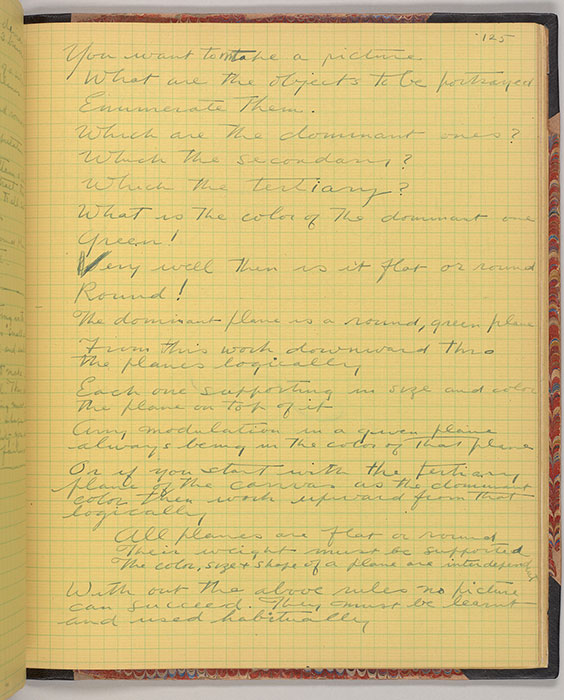 125
You want to make a picture.
What are the objects to be portrayed
Enumerate them.
Which are the dominant ones?
Which the secondary?
Which the tertiary?
What is the color of the dominant one
Green!
Very well then is it flat or round
Round!
The dominant plane is a round, green plane
From this work downward thro
the planes logically
Each one supporting in size and color
the plane on top of it
Any modulation in a given plane
always being in the color of that plane
Or if you start with the tertiary
plane of the canvas as the dominant
color then work upward from that
logically
All planes are flat or round
Their weight must be supported
The color, size & shape of a plane are interdepend
With out the above rules no picture
can succeed. They must be learnt
and used habitually